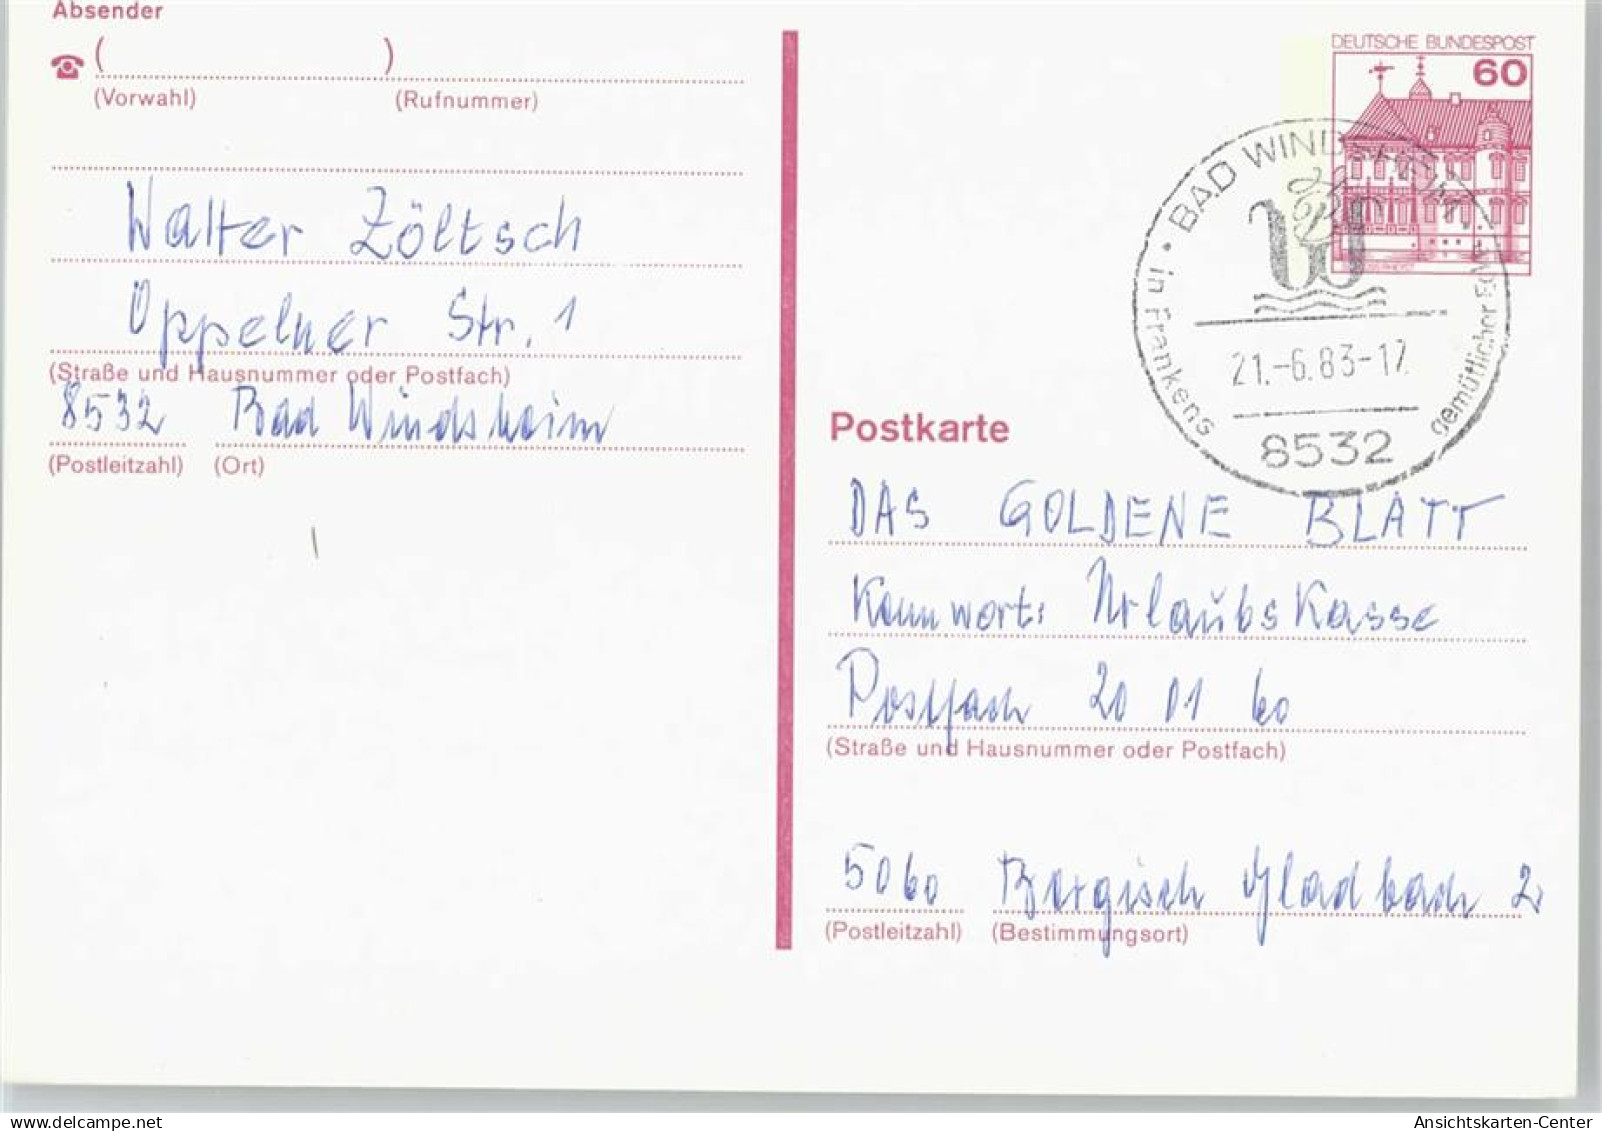 Absender
( )
(Vorwahl) (Rufnummer)
Walter Zöltsch
Oppelner Str. 1
(Straße und Hausnummer oder Postfach)
8532 Bad Windsheim
(Postleitzahl) (Ort)
DEUTSCHE BUNDESPOST
60
BAD WINDSHEIM
in Frankens gemütlicher
21.-6.83-17
8532
Postkarte
DAS GOLDENE BLATT
Kennwort: Urlaubskasse
Postfach 20 01 60
(Straße und Hausnummer oder Postfach)
5060 Bergisch Gladbach 2
(Postleitzahl) (Bestimmungsort)
Ansichtskarten-Center